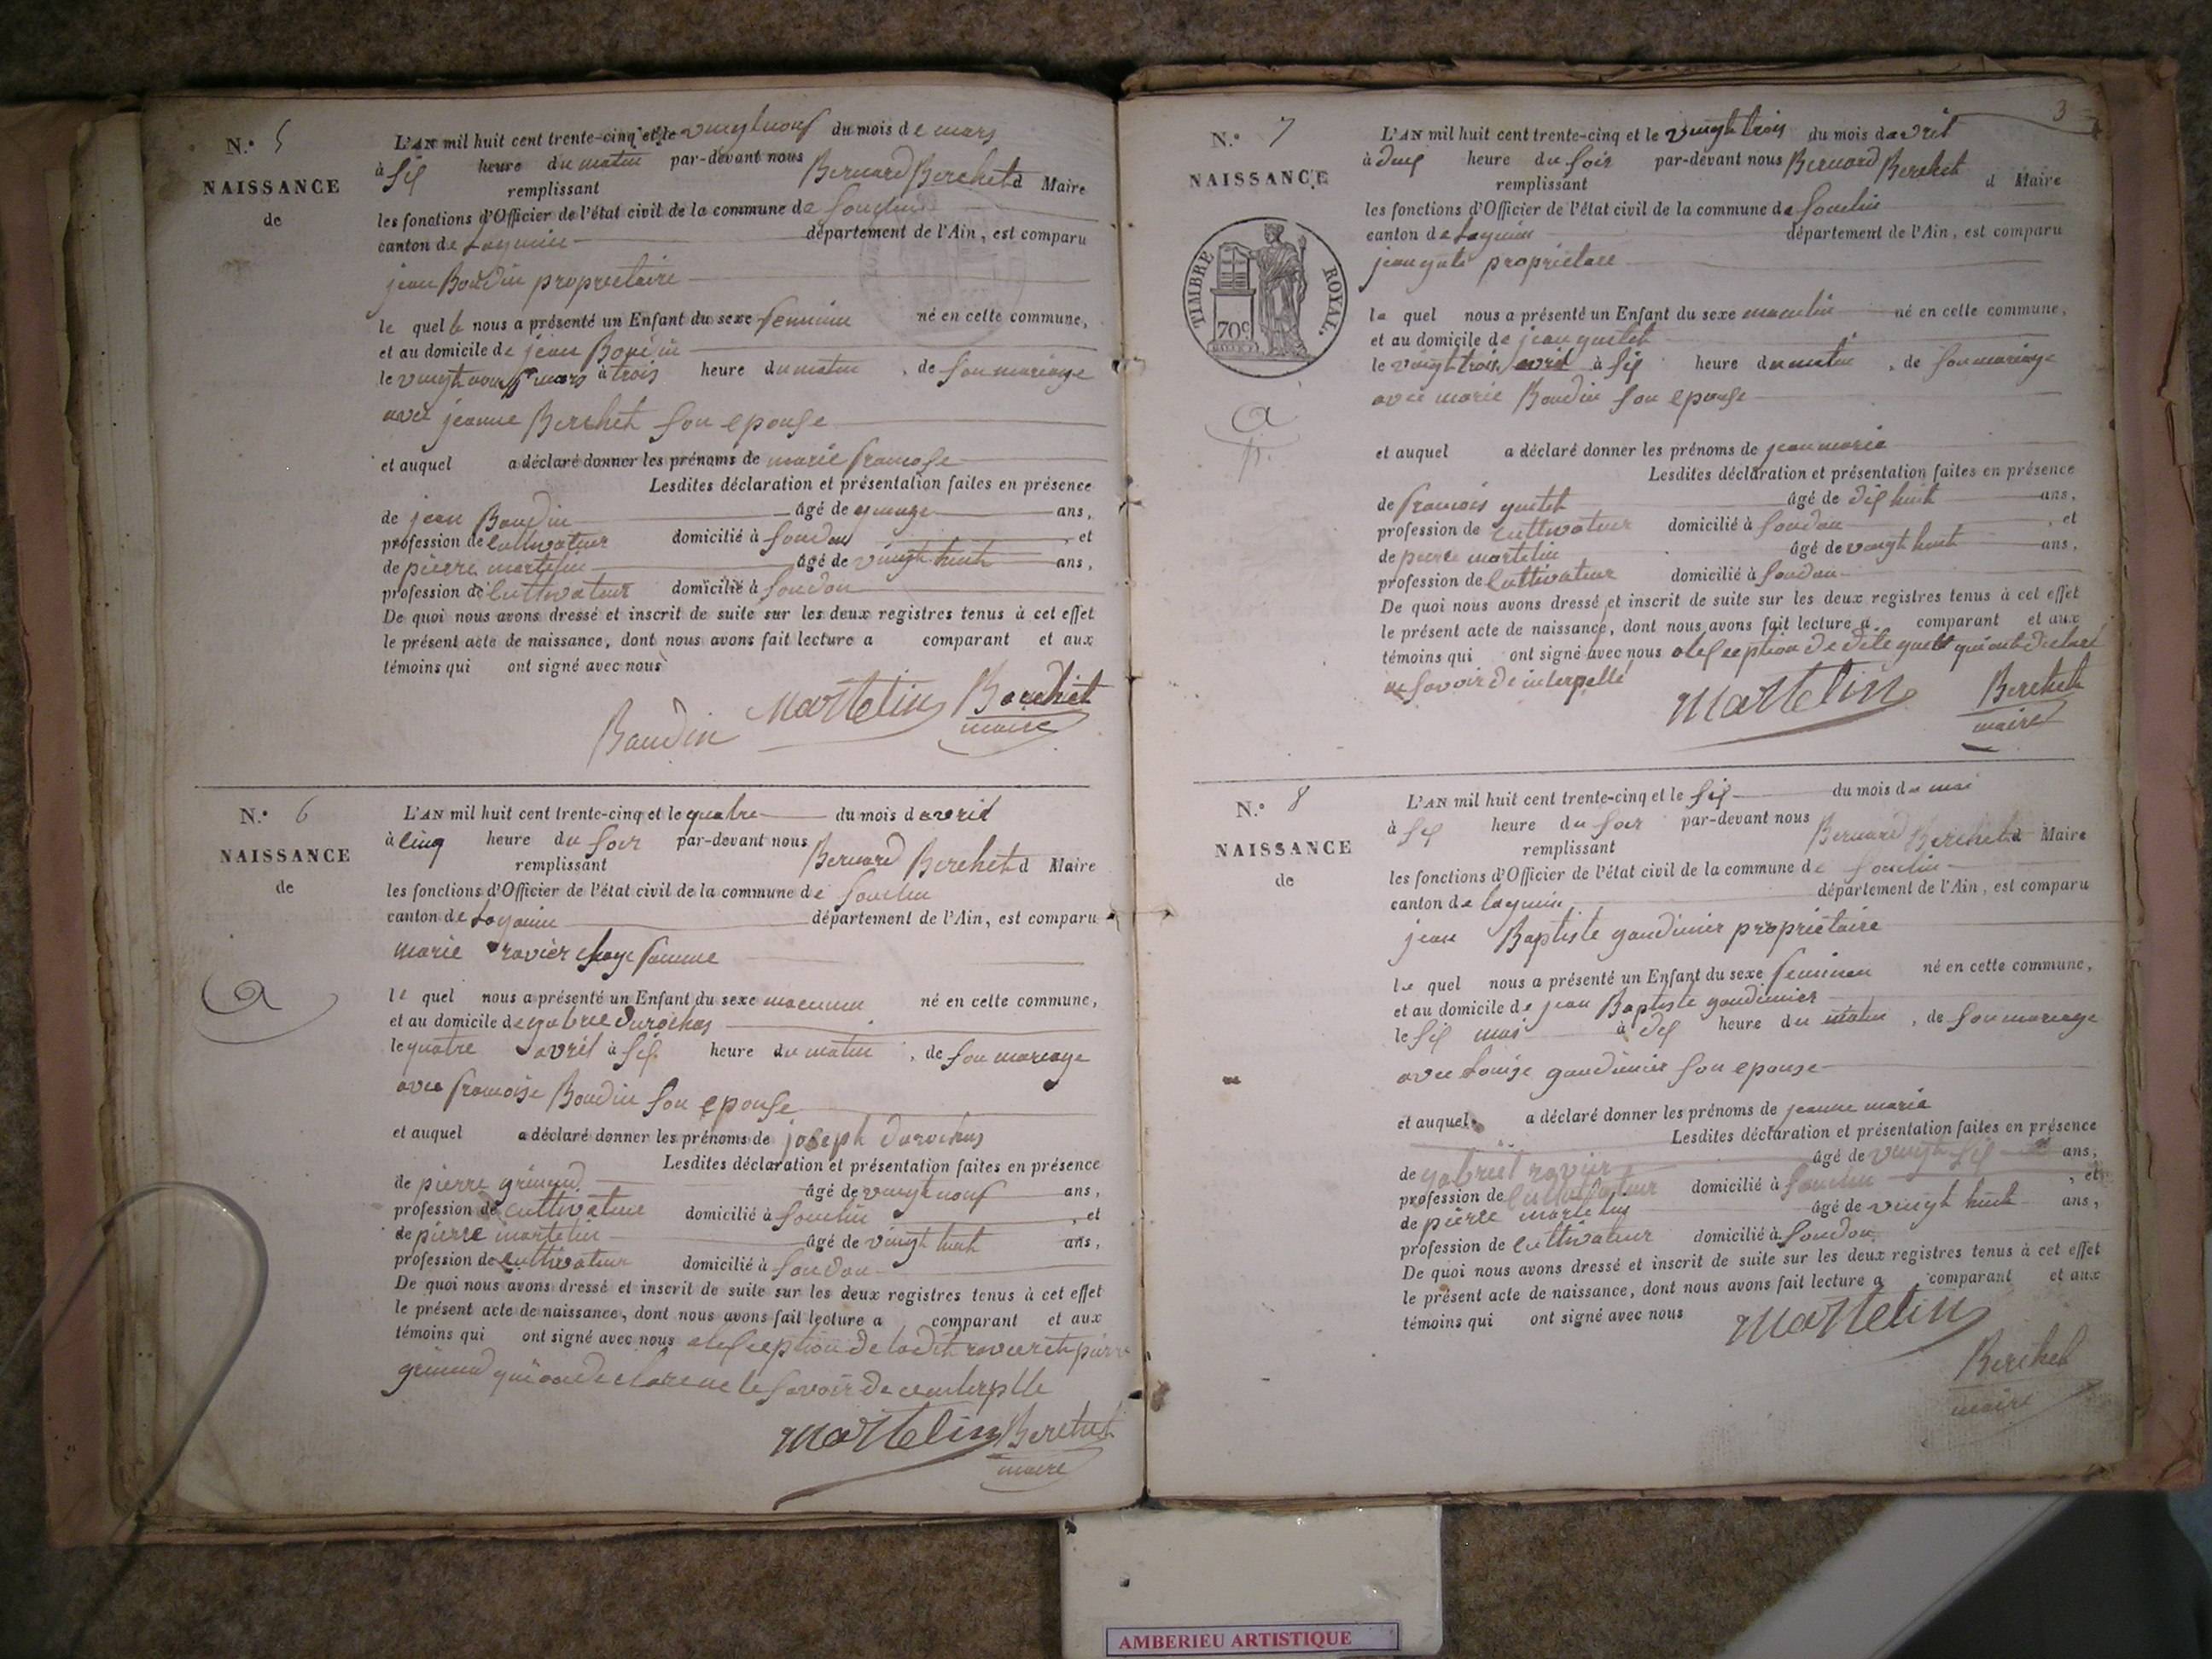 N.° 5
NAISSANCE
de
L'AN mil huit cent trente-cinq et le vingt nouf du mois de mars
à six heure du matin par-devant nous Bernard Berchet d Maire
remplissant
les fonctions d'Officier de l'état civil de la commune de Souclin
canton de Lagnieu département de l'Ain, est comparu
jean Boudin proprietaire
le quel nous a présenté un Enfant du sexe feminin né en cette commune,
et au domicile de jean Boudin
le vingt nouf mars à trois heure du matin, de son mariage
avec jeanne Berchet son epouse
et auquel a déclaré donner les prénoms de marie francose
Lesdites déclaration et présentation faites en présence
de jean Boudin âgé de ans,
profession de cultivateur domicilié à Soudon, et
de pierre martelin âgé de vingt huit ans,
profession de cultivateur domicilié à Soudon
De quoi nous avons dressé et inscrit de suite sur les deux registres tenus à cet effet
le présent acte de naissance, dont nous avons fait lecture a comparant et aux
témoins qui ont signé avec nous
Baudin Martelin Berchet
maire
N.° 6
NAISSANCE
de
a
L'AN mil huit cent trente-cinq et le quatre du mois d avril
à cinq heure du soir par-devant nous Bernard Berchet d Maire
remplissant
les fonctions d'Officier de l'état civil de la commune de Souclin
canton de Lagnieu département de l'Ain, est comparu
marie ravier sage famme
le quel nous a présenté un Enfant du sexe né en cette commune,
et au domicile de gabriel durochas
le quatre avril à six heure du matin, de son mariage
avec francoise Boudin son epouse
et auquel a déclaré donner les prénoms de joseph durochas
Lesdites déclaration et présentation faites en présence
de pierre grinand âgé de vingt nouf ans,
profession de cultivateur domicilié à Souclin, et
de pierre martelin âgé de vingt huit ans,
profession de cultivateur domicilié à Soudon
De quoi nous avons dressé et inscrit de suite sur les deux registres tenus à cet effet
le présent acte de naissance, dont nous avons fait lecture a comparant et aux
témoins qui ont signé avec nous a lexseption de ladit ravier et pierre
grinand qui savoir de
martelin Berchet
maire
3
N.° 7
NAISSANCE
TIMBRE ROYAL.
70c
a
L'AN mil huit cent trente-cinq et le vingt trois du mois d avril
à deux heure du soir par-devant nous Bernard Berchet d Maire
remplissant
les fonctions d'Officier de l'état civil de la commune de Souclin
canton de Lagnieu département de l'Ain, est comparu
jean proprietaire
le quel nous a présenté un Enfant du sexe masculin né en cette commune,
et au domicile de jean guetet
le vingt trois avril à six heure du matin, de son mariage
avec marie Boudin son epouse
et auquel a déclaré donner les prénoms de jean marie
Lesdites déclaration et présentation faites en présence
de francois guetet âgé de dix huit ans,
profession de cultivateur domicilié à Soudon, et
de pierre martelin âgé de vingt huit ans,
profession de cultivateur domicilié à Soudon
De quoi nous avons dressé et inscrit de suite sur les deux registres tenus à cet effet
le présent acte de naissance, dont nous avons fait lecture a comparant et aux
témoins qui ont signé avec nous a lexseption de qui ont declaré
ne savoir de interpellé
martelin Berchet
maire
N.° 8
NAISSANCE
de
L'AN mil huit cent trente-cinq et le six du mois de mai
à six heure du soir par-devant nous Bernard Berchet d Maire
remplissant
les fonctions d'Officier de l'état civil de la commune de Souclin
canton de Lagnieu département de l'Ain, est comparu
jean Baptiste gandinier propriétaire
le quel nous a présenté un Enfant du sexe feminin né en cette commune,
et au domicile de jean Baptiste gandinier
le six mai à dix heure du matin, de son mariage
avec Louise gandinier son epouse
et auquel a déclaré donner les prénoms de jeanne marie
Lesdites déclaration et présentation faites en présence
de gabriel ravier âgé de vingt six ans,
profession de cultivateur domicilié à Souclin, et
de pierre martelin âgé de vingt huit ans,
profession de cultivateur domicilié à Soudon
De quoi nous avons dressé et inscrit de suite sur les deux registres tenus à cet effet
le présent acte de naissance, dont nous avons fait lecture a comparant et aux
témoins qui ont signé avec nous martelin
Berchet
maire
AMBERIEU ARTISTIQUE